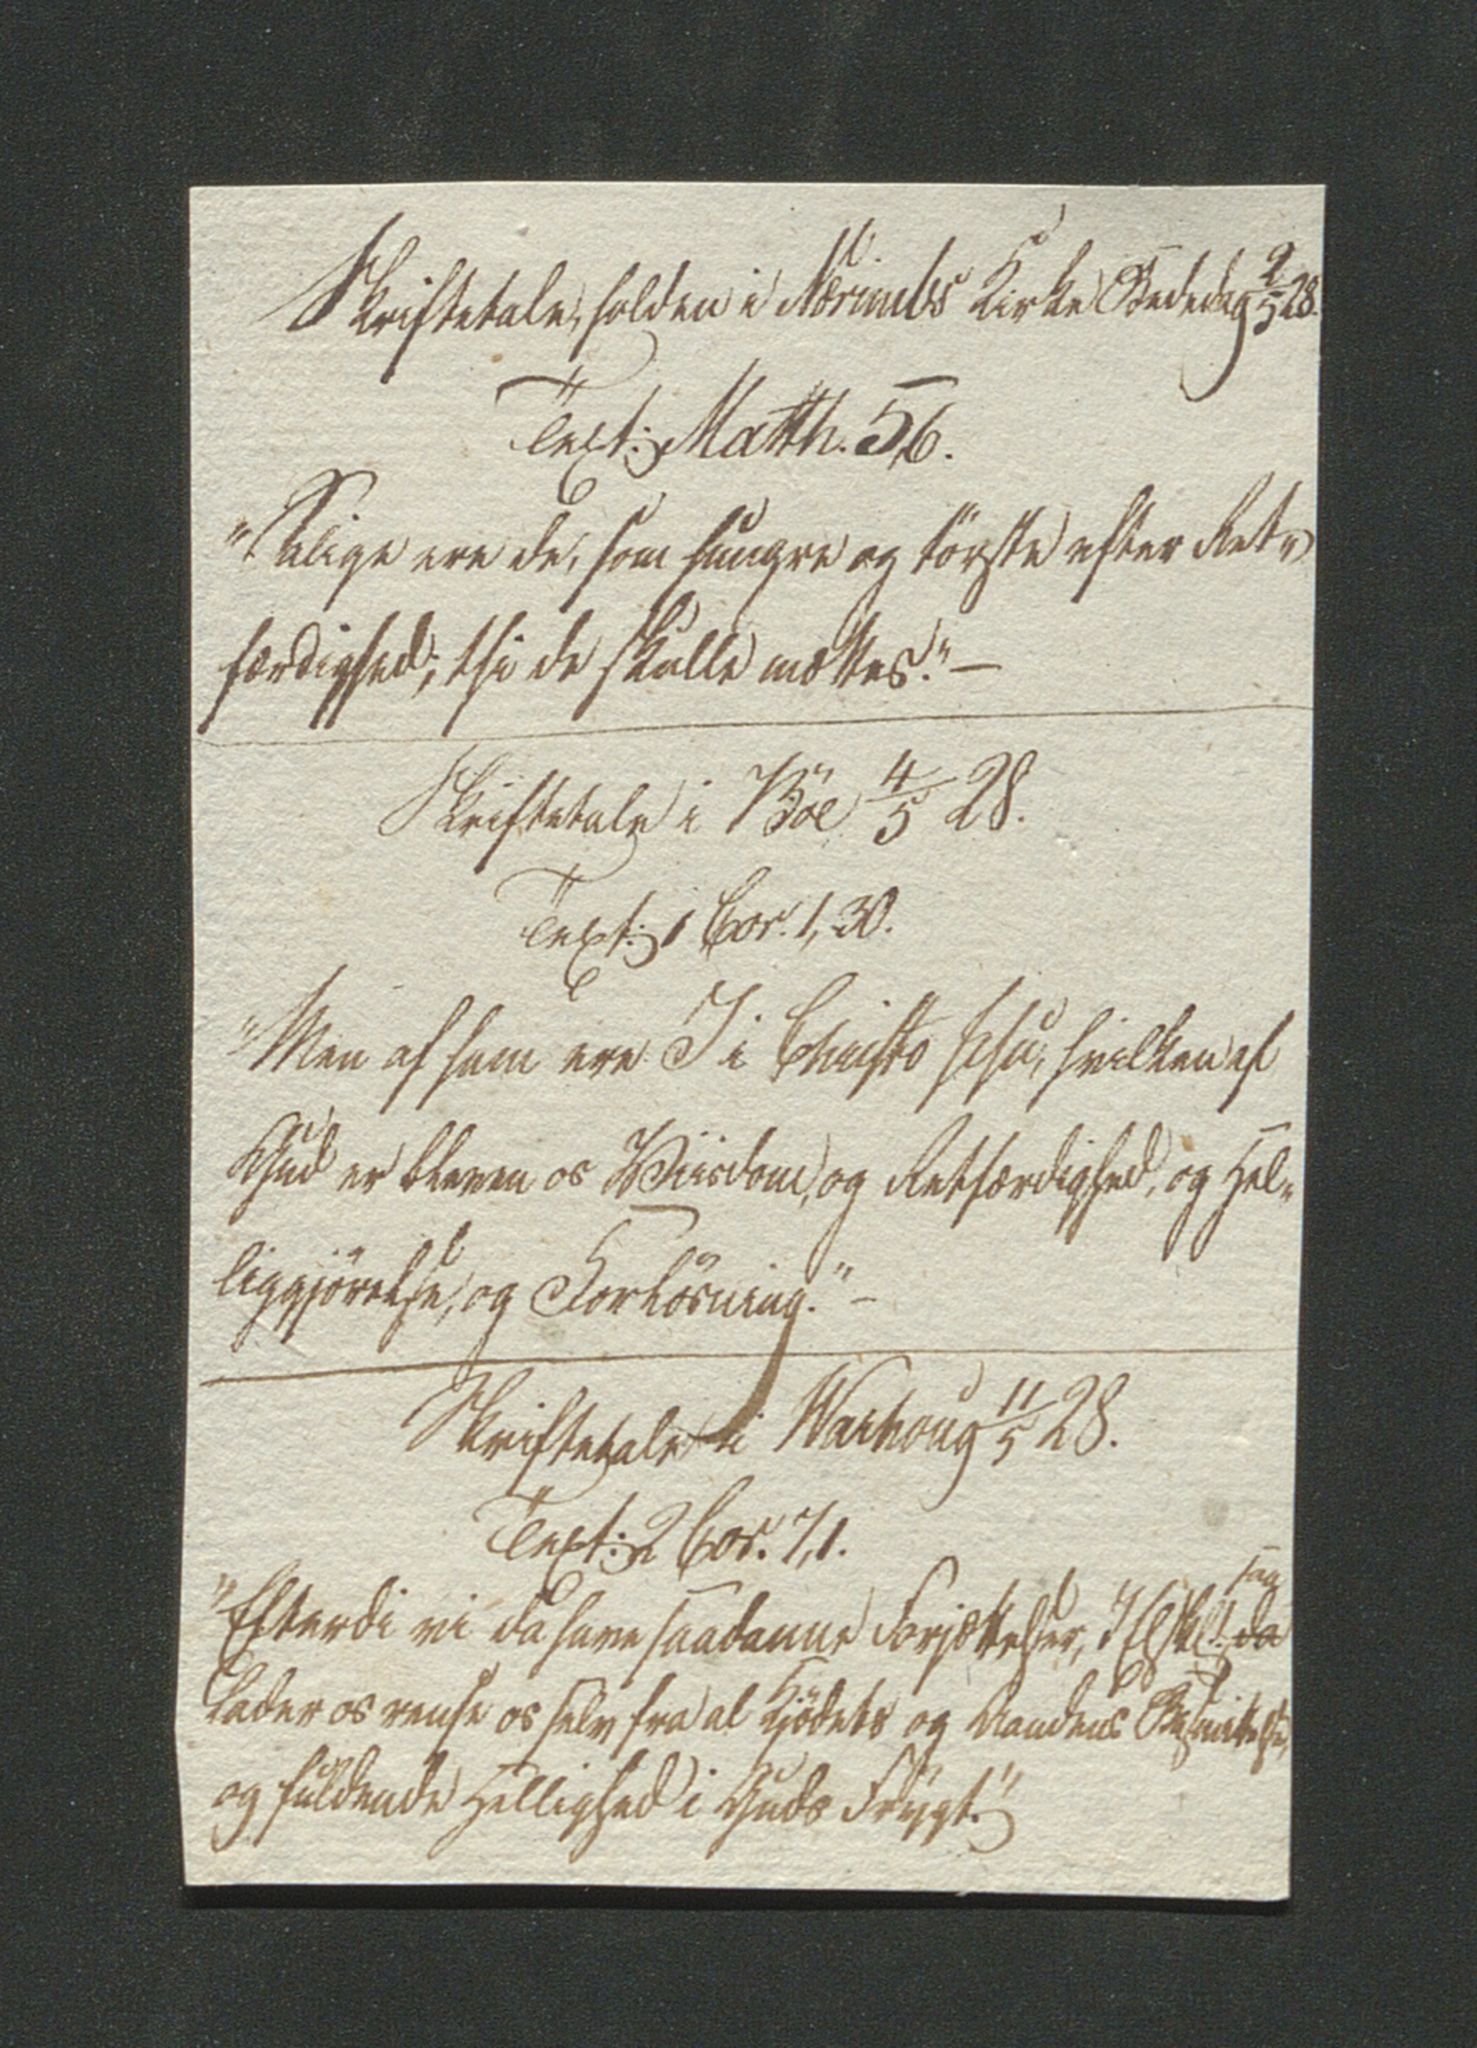 Skriftetale, holden i Nærimdss Kirke Bededag 2/5 28.
Text: Matth. 5,6.
"Salige ere de, som hungre og törste efter Ret-
færdighed; thi de skulle mættes." —
Skriftetale i Böe 4/5 28.
Text: 1 Cor. 1, 30.
"Men af ham ere I i Christo Jesu, hvilken af
Gud er bleven os Wiisdom, og Retfærdighed, og Hel-
liggjörelse, og Forlösning." —
Skriftetale i Warhoug 11/5 28.
Text: 2 Cor. 7,1.
"Efterdi vi da have saadanne Forjættelser, I Elskel! da
lader os rense os selv fra al Kjödets og Aandens Besmittelse,
og fuldende Hellighed i Guds Frygt."